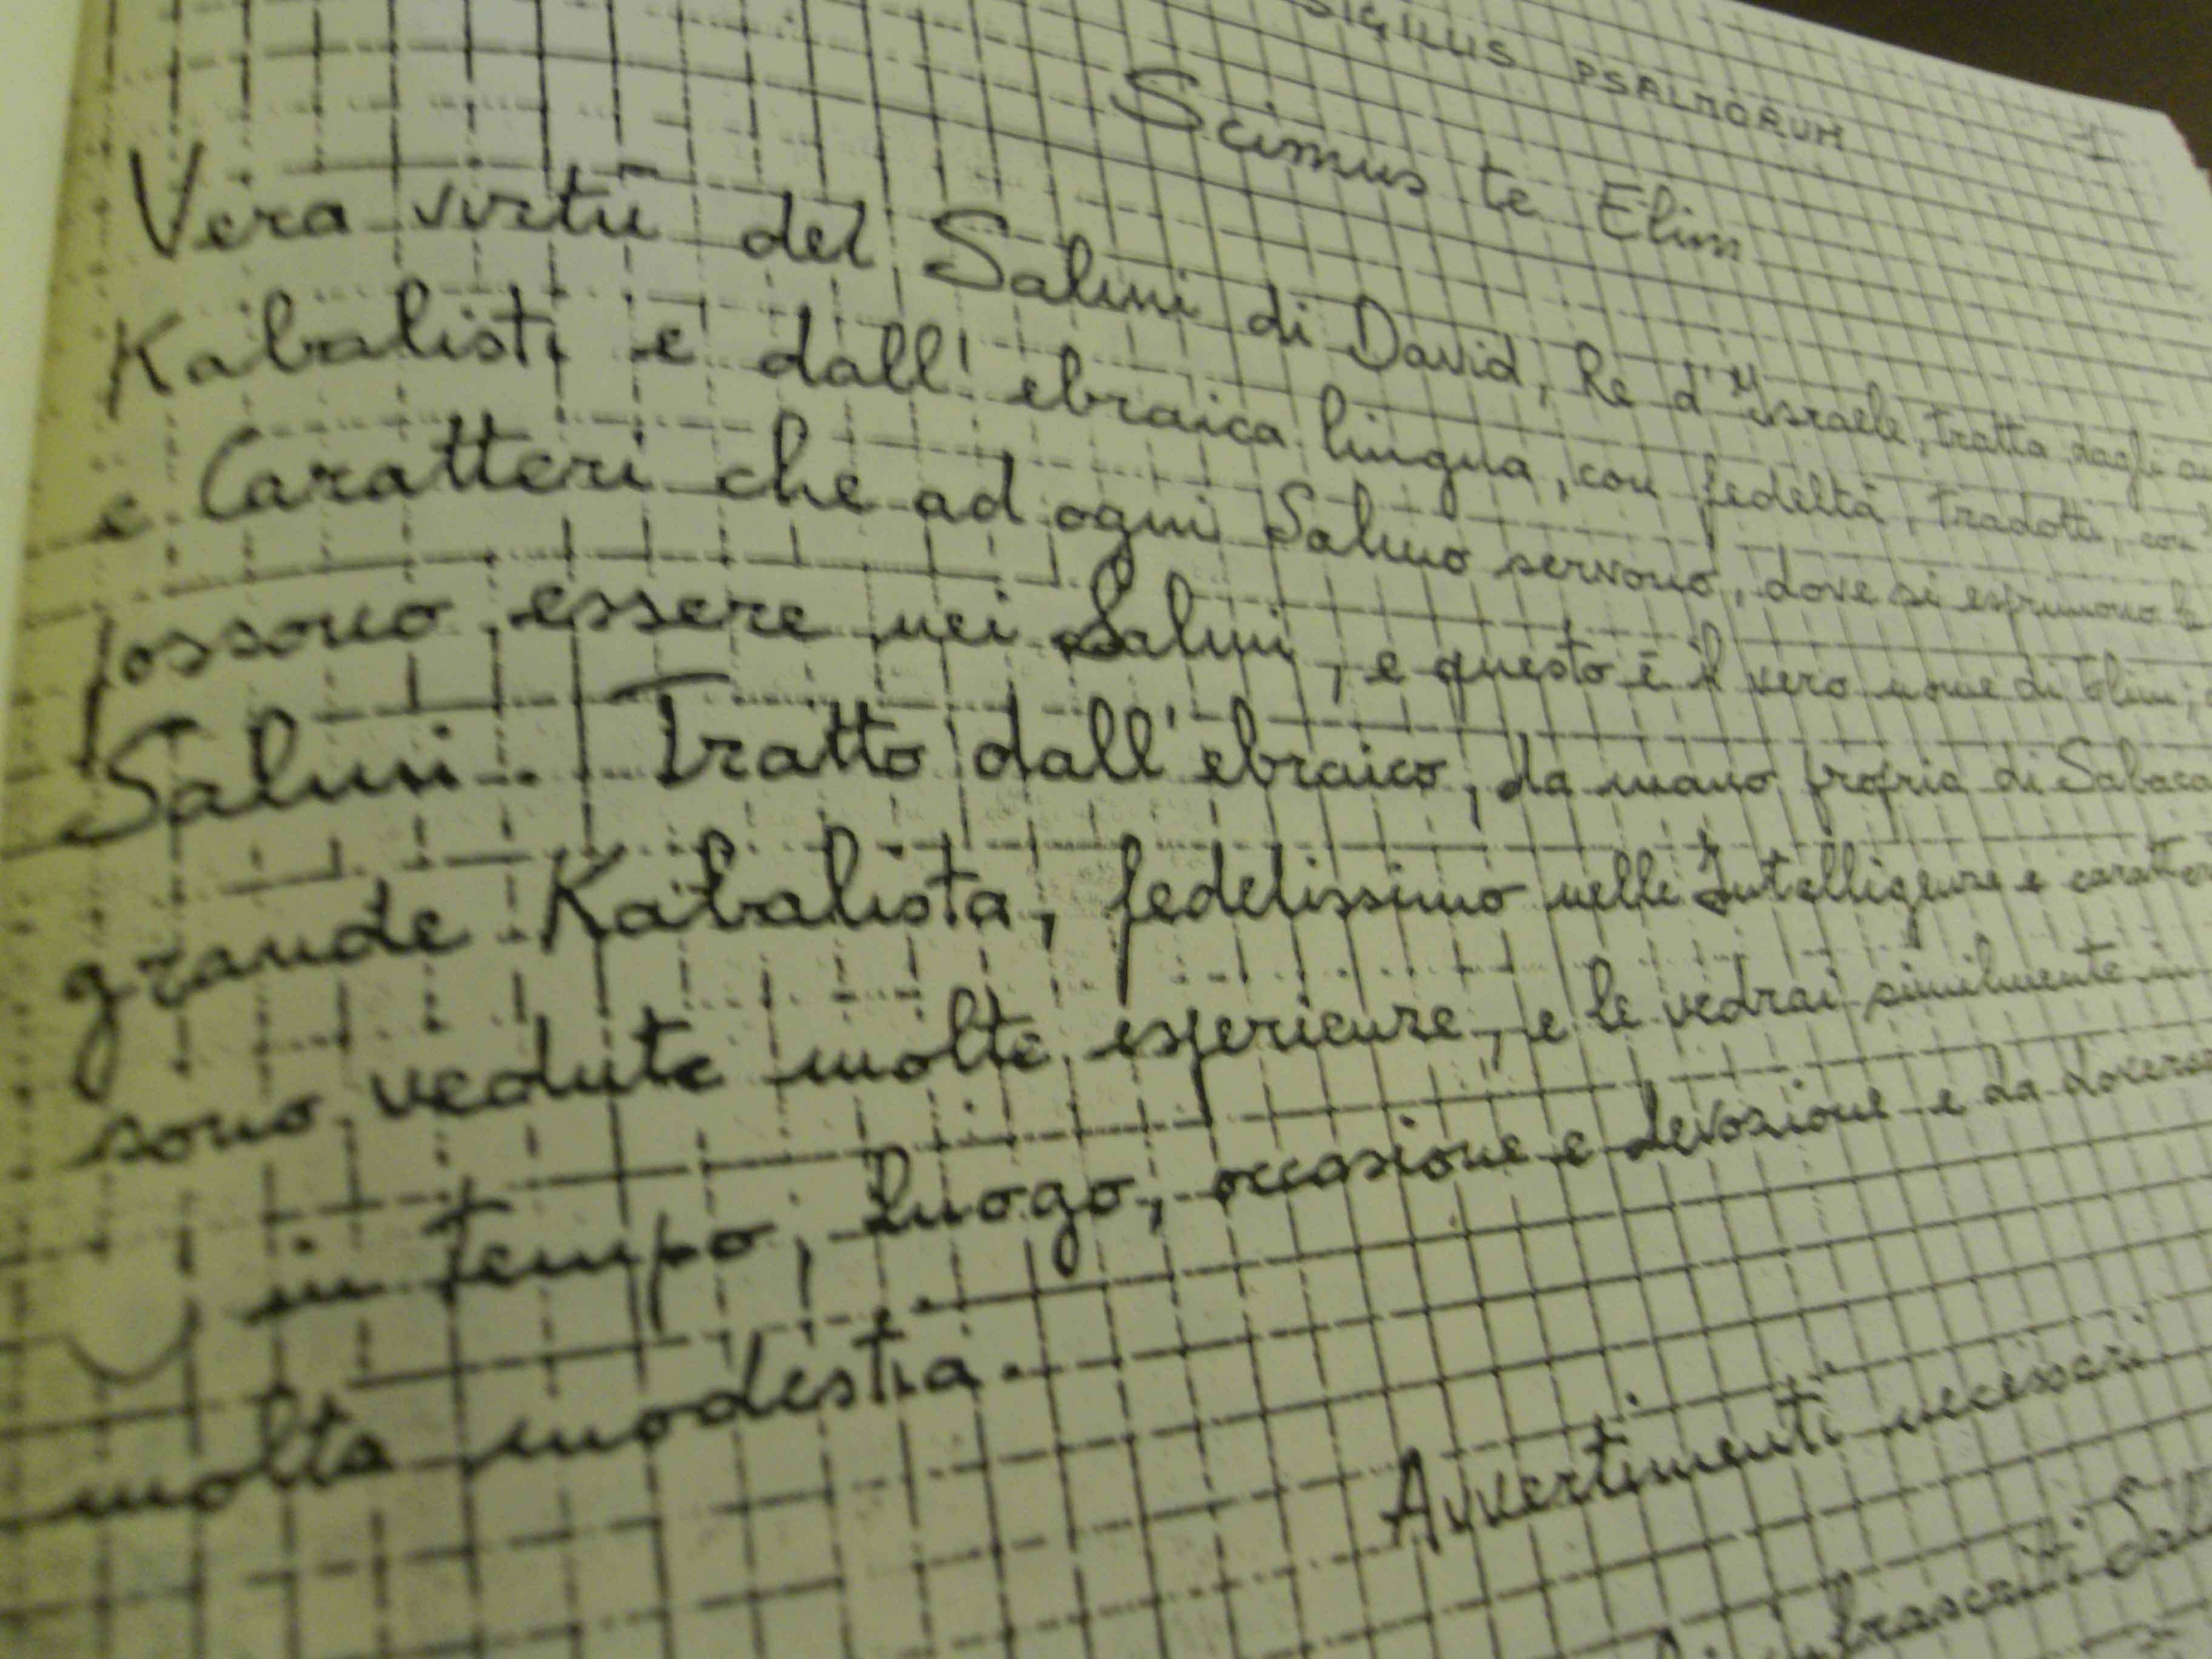 SIGILLUS PSALMORUM 1
Scimus te Elim
Vera virtù dei Salmi di David, Re d'Israele, tratta dagli
Kabalisti e dall'ebraica lingua, con fedeltà, tradotti, con
e Caratteri che ad ogni Salmo servono, dove si esprimono
possono essere nei Salmi, e questo è il vero nome di Elim,
Salmi. Tratto dall'ebraico, da mano propria di
grande Kabalista, fedelissimo nelle Intelligenze e
sono vedute molte esperienze, e le vedrai similmente in
in tempo, luogo, occasione e devozione e da
molta modestia.
Avvertimenti necessari